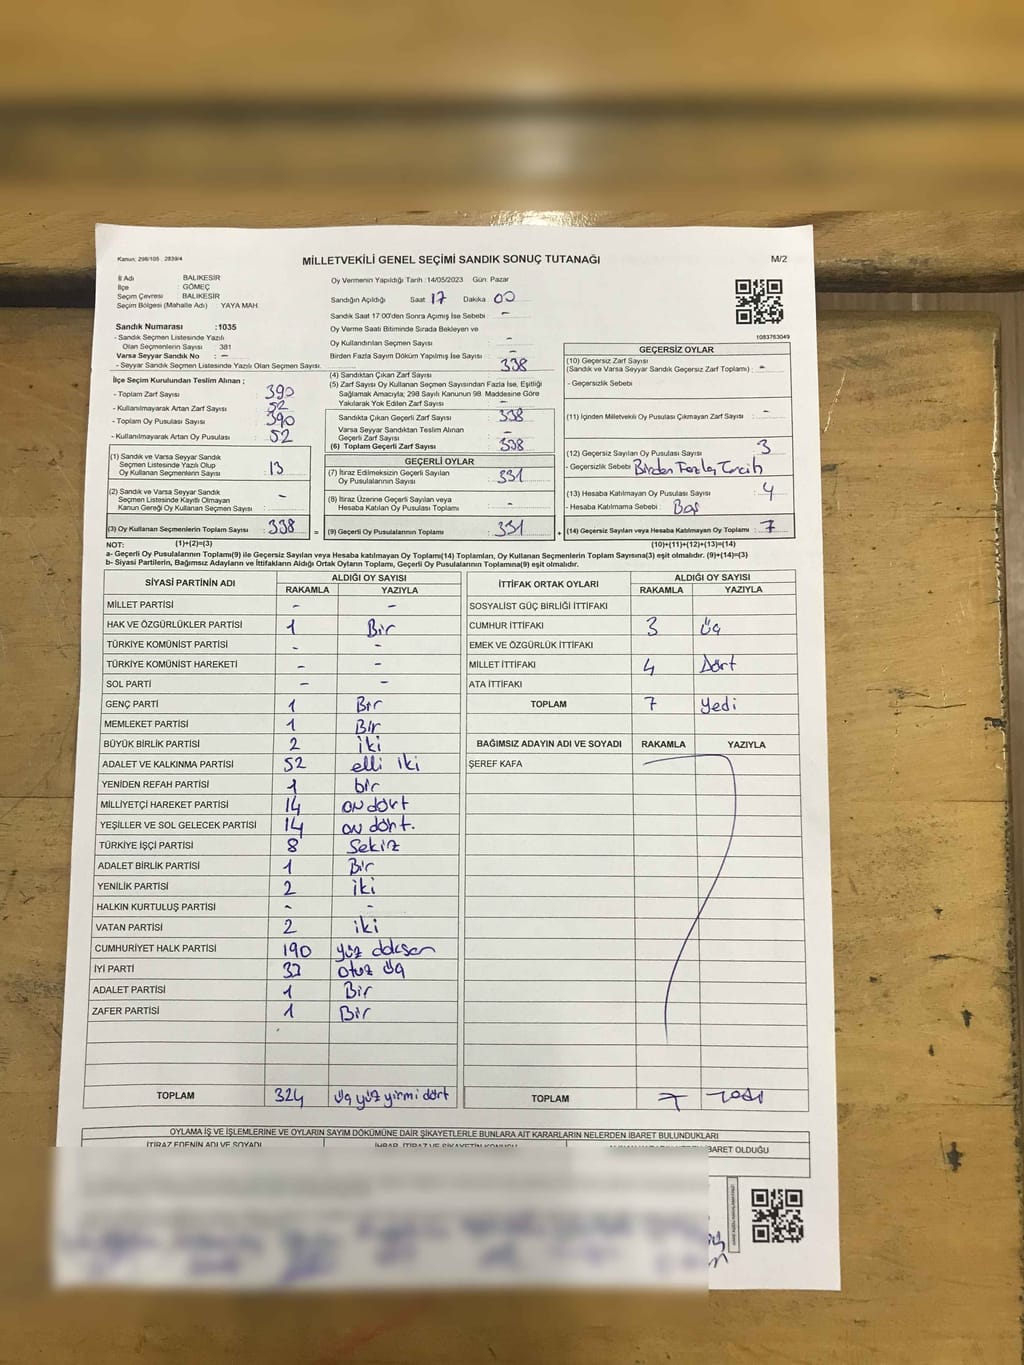 Kanun: 298/105 , 2839/4
MİLLETVEKİLİ GENEL SEÇİMİ SANDIK SONUÇ TUTANAĞI
M/2
İl Adı : BALIKESİR
İlçe : GÖMEÇ
Seçim Çevresi : BALIKESİR
Seçim Bölgesi (Mahalle Adı) YAYA MAH.
Sandık Numarası :1035
- Sandık Seçmen Listesinde Yazılı
Olan Seçmenlerin Sayısı : 381
Varsa Seyyar Sandık No : -
- Seyyar Sandık Seçmen Listesinde Yazılı Olan Seçmen Sayısı:
İlçe Seçim Kurulundan Teslim Alınan ;
- Toplam Zarf Sayısı : 390
- Kullanılmayarak Artan Zarf Sayısı : 52
- Toplam Oy Pusulası Sayısı : 390
- Kullanılmayarak Artan Oy Pusulası : 52
(1) Sandık ve Varsa Seyyar Sandık
Seçmen Listesinde Yazılı Olup
Oy Kullanan Seçmenlerin Sayısı : 13
(2) Sandık ve Varsa Seyyar Sandık
Seçmen Listesinde Kayıtlı Olmayan
Kanun Gereği Oy Kullanan Seçmen Sayısı : -
(3) Oy Kullanan Seçmenlerin Toplam Sayısı : 338
Oy Vermenin Yapıldığı Tarih :14/05/2023 Gün: Pazar
Sandığın Açıldığı Saat : 17 Dakika : 00
Sandık Saat 17:00'den Sonra Açımış İse Sebebi : -
Oy Verme Saati Bitiminde Sırada Bekleyen ve
Oy Kullandırılan Seçmen Sayısı : -
Birden Fazla Sayım Döküm Yapılmış İse Sayısı : -
(4) Sandıktan Çıkan Zarf Sayısı : 338
(5) Zarf Sayısı Oy Kullanan Seçmen Sayısından Fazla İse, Eşitliği
Sağlamak Amacıyla; 298 Sayılı Kanunun 98. Maddesine Göre
Yakılarak Yok Edilen Zarf Sayısı : -
Sandıkta Çıkan Geçerli Zarf Sayısı : 338
Varsa Seyyar Sandıktan Teslim Alınan
Geçerli Zarf Sayısı : -
(6) Toplam Geçerli Zarf Sayısı : 338
GEÇERLİ OYLAR
(7) İtiraz Edilmeksizin Geçerli Sayılan
Oy Pusulalarının Sayısı : 331
(8) İtiraz Üzerine Geçerli Sayılan veya
Hesaba Katılan Oy Pusulaları Toplamı : -
= (9) Geçerli Oy Pusulalarının Toplamı : 331
1083763049
GEÇERSİZ OYLAR
(10) Geçersiz Zarf Sayısı
(Sandık ve Varsa Seyyar Sandık Geçersiz Zarf Toplamı) : -
- Geçersizlik Sebebi
(11) İçinden Milletvekili Oy Pusulası Çıkmayan Zarf Sayısı : -
(12) Geçersiz Sayılan Oy Pusulası Sayısı : 3
- Geçersizlik Sebebi : Birden Fazla Tercih
(13) Hesaba Katılmayan Oy Pusulası Sayısı : 4
- Hesaba Katılmama Sebebi : Boş
+ (14) Geçersiz Sayılan veya Hesaba Katılmayan Oy Toplamı : 7
NOT: (1)+(2)=(3) (10)+(11)+(12)+(13)=(14)
a- Geçerli Oy Pusulalarının Toplamı(9) ile Geçersiz Sayılan veya Hesaba katılmayan Oy Toplamı(14) Toplamları, Oy Kullanan Seçmenlerin Toplam Sayısına(3) eşit olmalıdır. (9)+(14)=(3)
b- Siyasi Partilerin, Bağımsız Adayların ve İttifakların Aldığı Ortak Oyların Toplamı, Geçerli Oy Pusulalarının Toplamına(9) eşit olmalıdır.
SİYASİ PARTİNİN ADI ALDIĞI OY SAYISI
RAKAMLA YAZIYLA
MİLLET PARTİSİ - -
HAK VE ÖZGÜRLÜKLER PARTİSİ 1 Bir
TÜRKİYE KOMÜNİST PARTİSİ - -
TÜRKİYE KOMÜNİST HAREKETİ - -
SOL PARTİ - -
GENÇ PARTİ 1 Bir
MEMLEKET PARTİSİ 1 Bir
BÜYÜK BİRLİK PARTİSİ 2 iki
ADALET VE KALKINMA PARTİSİ 52 elli iki
YENİDEN REFAH PARTİSİ 1 bir
MİLLİYETÇİ HAREKET PARTİSİ 14 on dört
YEŞİLLER VE SOL GELECEK PARTİSİ 14 on dört.
TÜRKİYE İŞÇİ PARTİSİ 8 Sekiz
ADALET BİRLİK PARTİSİ 1 Bir
YENİLİK PARTİSİ 2 iki
HALKIN KURTULUŞ PARTİSİ - -
VATAN PARTİSİ 2 iki
CUMHURİYET HALK PARTİSİ 190 yüz doksan
İYİ PARTİ 33 otuz üç
ADALET PARTİSİ 1 Bir
ZAFER PARTİSİ 1 Bir
TOPLAM 324 üç yüz yirmi dört
İTTİFAK ORTAK OYLARI ALDIĞI OY SAYISI
RAKAMLA YAZIYLA
SOSYALİST GÜÇ BİRLİĞİ İTTİFAKI
CUMHUR İTTİFAKI 3 üç
EMEK VE ÖZGÜRLÜK İTTİFAKI
MİLLET İTTİFAKI 4 Dört
ATA İTTİFAKI
TOPLAM 7 yedi
BAĞIMSIZ ADAYIN ADI VE SOYADI RAKAMLA YAZIYLA
ŞEREF KAFA
TOPLAM 7 Yedi
OYLAMA İŞ VE İŞLEMLERİNE VE OYLARIN SAYIM DÖKÜMÜNE DAİR ŞİKAYETLERLE BUNLARA AİT KARARLARIN NELERDEN İBARET BULUNDUKLARI
İTİRAZ EDENİN ADI VE SOYADI
BARET OLDUĞU